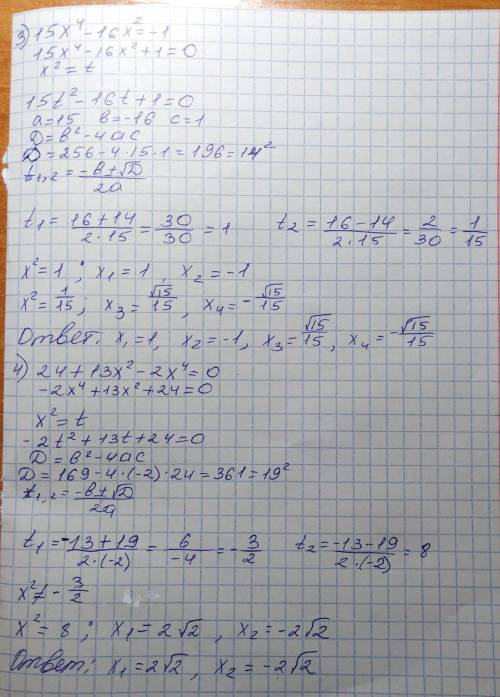 3) 15x⁴-16x²=-1
15x⁴-16x²+1=0
x²=t
15t²-16t+1=0
a=15 в=-16 c=1
D=в²-4ac
D=256-4·15·1=196=14²
t₁,₂=(-в±√D)/2a
t₁=(16+14)/(2·15)=30/30=1 t₂=(16-14)/(2·15)=2/30=1/15
x²=1; x₁=1, x₂=-1
x²=1/15; x₃=√15/15, x₄=-√15/15
Ответ: x₁=1, x₂=-1, x₃=√15/15, x₄=-√15/15
4) 24+13x²-2x⁴=0
-2x⁴+13x²+24=0
x²=t
-2t²+13t+24=0
D=в²-4ac
D=169-4·(-2)·24=361=19²
t₁,₂=(-в±√D)/2a
t₁=(-13+19)/(2·(-2))=6/-4=-3/2 t₂=(-13-19)/(2·(-2))=8
x²≠-3/2
x²=8; x₁=2√2, x₂=-2√2
Ответ: x₁=2√2, x₂=-2√2